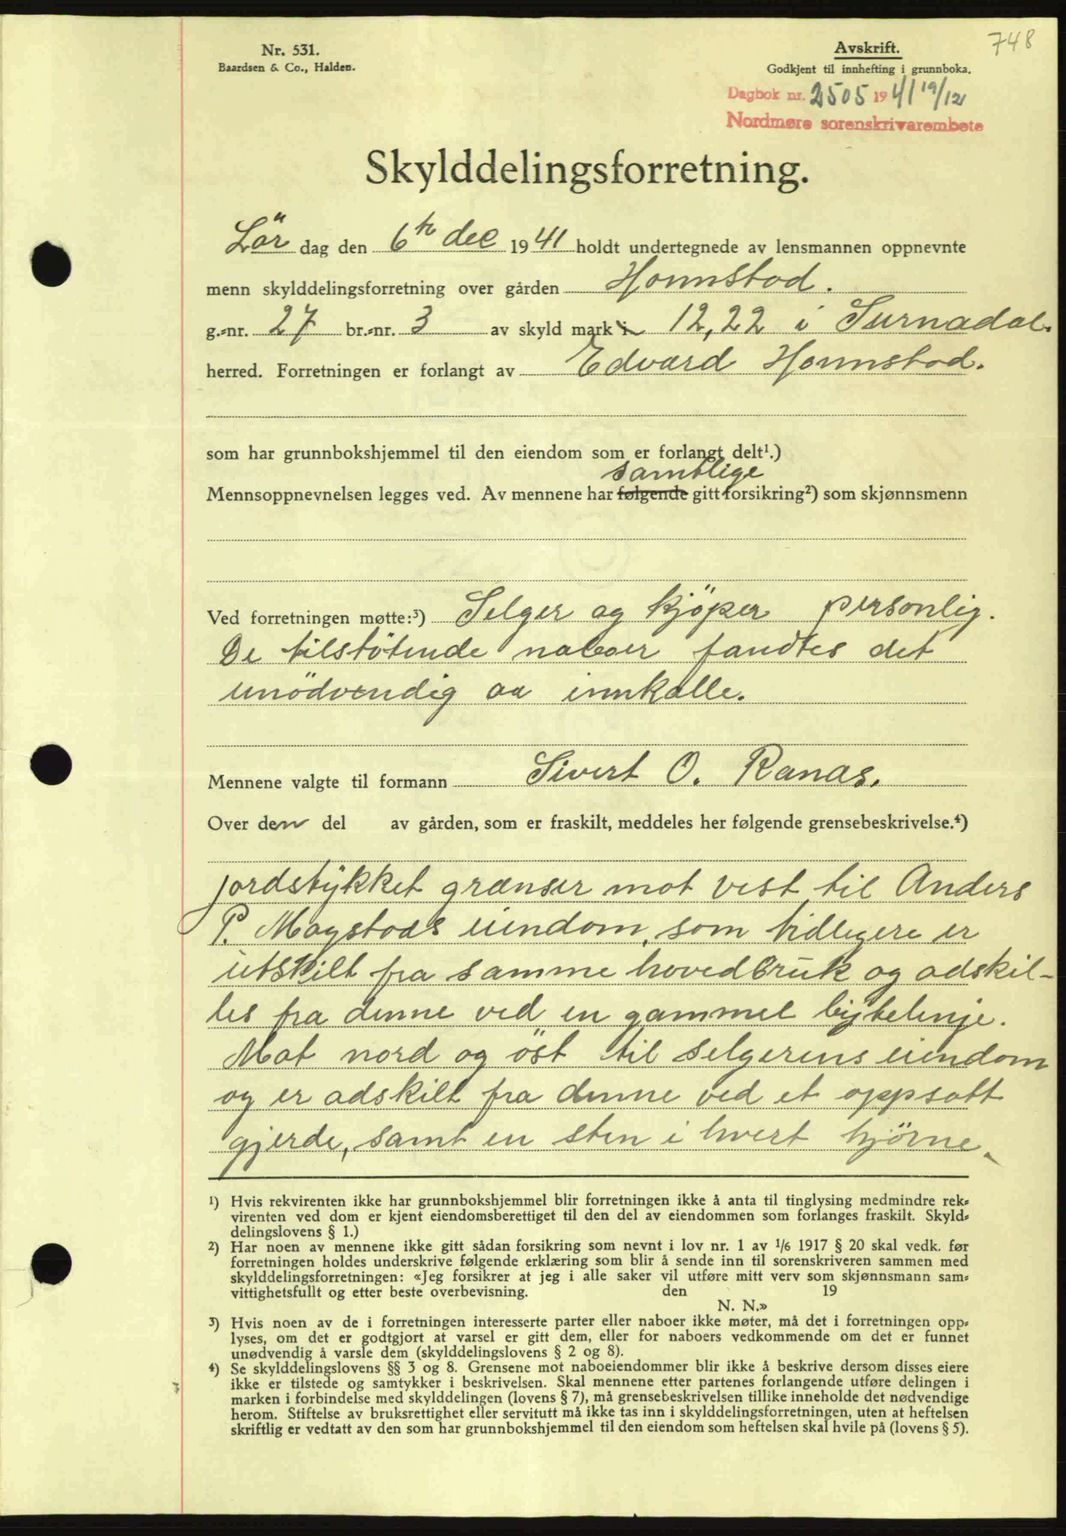 748
Nr. 531.
Baardsen & Co., Halden.
Avskrift.
Godkjent til innhefting i grunnboka.
Dagbok nr. 2505 1941 19/12
Nordmøre sorenskrivarembete
Skylddelingsforretning.
Lör dag den 6te dec 1941 holdt undertegnede av lensmannen oppnevnte
menn skylddelingsforretning over gården Honnstad.
g.-nr. 27 br.-nr. 3 av skyld mark 12,22 i Surnadal
herred. Forretningen er forlangt av Edvard Honnstad.
som har grunnbokshjemmel til den eiendom som er forlangt delt¹.)
samtlige
Mennsoppnevnelsen legges ved. Av mennene har følgende gitt forsikring²) som skjønnsmenn
Ved forretningen møtte:³) Selger og kjöper personlig.
De tilstötende naboer fandtes det
unödvendig aa innkalle.
Mennene valgte til formann Sivert O. Ranas.
Over den del av gården, som er fraskilt, meddeles her følgende grensebeskrivelse.⁴)
jordstykket grænser mot vest til Anders
P. Mogstads eiendom, som tidligere er
utskilt fra samme hovedbruk og adskil-
les fra denne ved en gammel bytelinje.
Mot nord og öst til selgerens eiendom
og er adskilt fra denne ved et oppsatt
gjerde, samt en sten i hvert hjörne.
¹) Hvis rekvirenten ikke har grunnbokshjemmel blir forretningen ikke å anta til tinglysing medmindre rek-
virenten ved dom er kjent eiendomsberettiget til den del av eiendommen som forlanges fraskilt. Skyld-
delingslovens § 1.)
²) Har noen av mennene ikke gitt sådan forsikring som nevnt i lov nr. 1 av ¹/₆ 1917 § 20 skal vedk. før
forretningen holdes underskrive følgende erklæring som blir å sende inn til sorenskriveren sammen med
skylddelingsforretningen: «Jeg forsikrer at jeg i alle saker vil utføre mitt verv som skjønnsmann sam-
vittighetsfullt og etter beste overbevisning. den 19
N. N.»
³) Hvis noen av de i forretningen interesserte parter eller naboer ikke møter, må det i forretningen opp-
lyses, om det er godtgjort at varsel er gitt dem, eller for naboers vedkommende om det er funnet
unødvendig å varsle dem (skylddelingslovens § 2 og 8).
⁴) Se skylddelingslovens §§ 3 og 8. Grensene mot naboeiendommer blir ikke å beskrive dersom disses eiere
ikke er tilstede og samtykker i beskrivelsen. Skal mennene etter partenes forlangende utføre delingen i
marken i forbindelse med skylddelingen (lovens § 7), må grensebeskrivelsen tillike inneholde det nødvendige
herom. Stiftelse av bruksrettighet eller servitutt må ikke tas inn i skylddelingsforretningen, uten at heftelsen
skriftlig er vedtatt av den som har grunnbokshjemmel til den eiendom som heftelsen skal hvile på (lovens § 5).